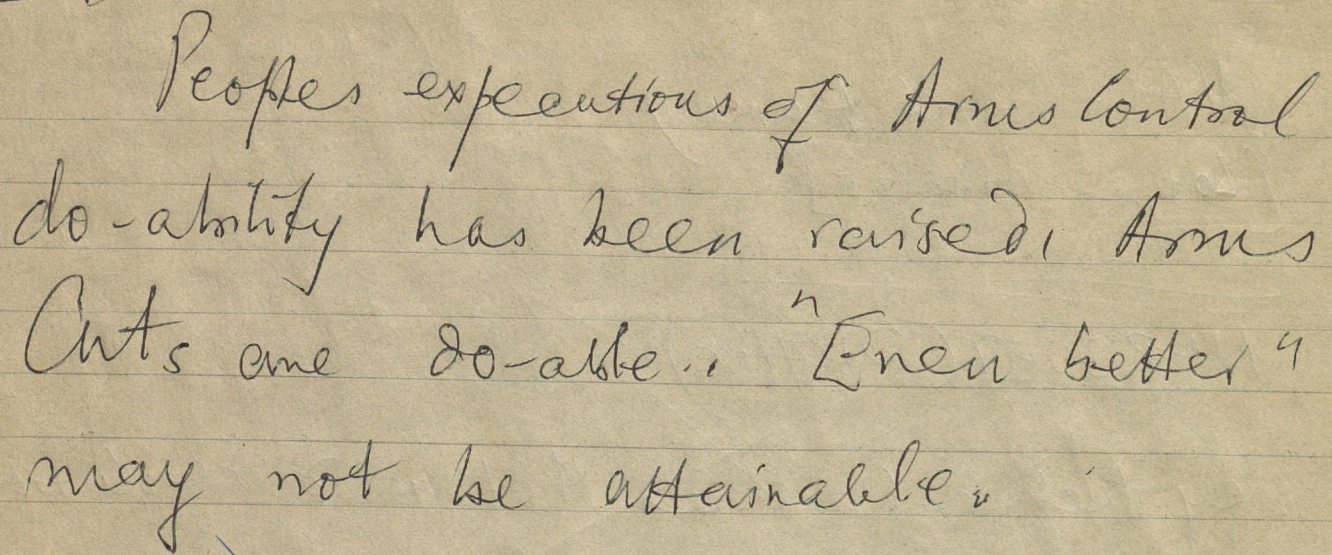 Peoples expecutions of Arms Control
do-ability has been raised, Arms
Cuts are do-able.. "Even better"
may not be attainable.